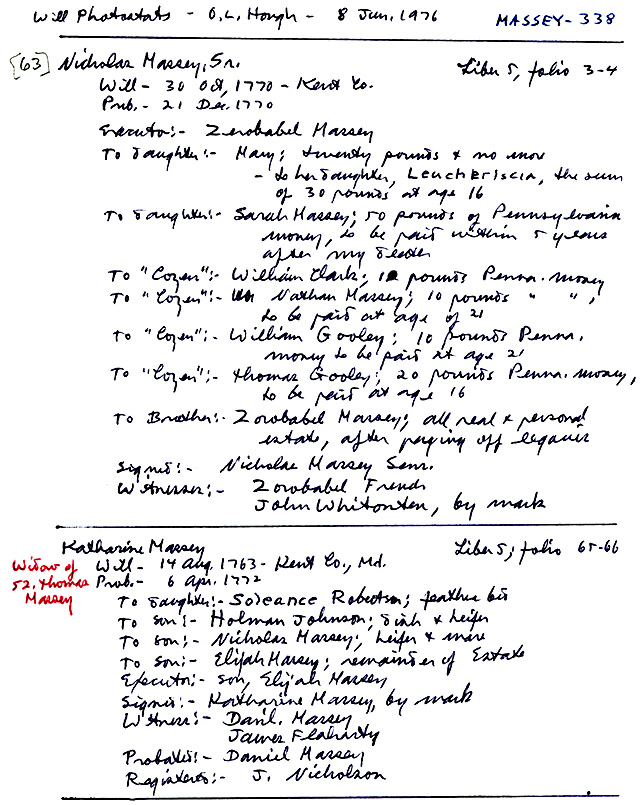 Will Photostats - O.L. Hough - 8 Jun. 1976 MASSEY-338
[63] Nicholas Massey, Sr. Liber 5, folio 3-4
Will - 30 Oct, 1770 - Kent Co.
Prob. - 21 Dec. 1770
Executor:- Zerobabel Massey
To Daughter:- Mary; twenty pounds & no more
- to her daughter, Leucheriscia, the sum
of 30 pounds at age 16
To Daughter:- Sarah Massey; 50 pounds of Pennsylvania
money, to be paid within 5 years
after my death
To "Cozen":- William Clark; 10 pounds Penna. money
To "Cozen":- Nathan Massey; 10 pounds " ",
to be paid at age of 21
To "Cozen":- William Gooley; 10 pounds Penna.
money to be paid at age 21
To "Cozen":- Thomas Gooley; 20 pounds Penna. money,
to be paid at age 16
To Brother:- Zorobabel Massey; all real & personal
estate, after paying off legacies
Signed:- Nicholas Massey Senr.
Witnesses:- Zorobabel French
John Whitonton, by mark
Katharine Massey Liber 5; folio 65-66
Widow of Will - 14 Aug. 1763 - Kent Co., Md.
52. Thomas Prob. - 6 Apr. 1772
Massey
To Daughter:- Soleance Robertson; feather bed
To Son:- Holman Johnson; dish & heifer
To Son:- Nicholas Massey; heifer & mare
To Son:- Elijah Massey; remainder of Estate
Executor:- Son, Elijah Massey
Signed:- Katharine Massey, by mark
Witness:- Danl. Massey
James Flaharty
Probated:- Daniel Massey
Registered:- J. Nicholson